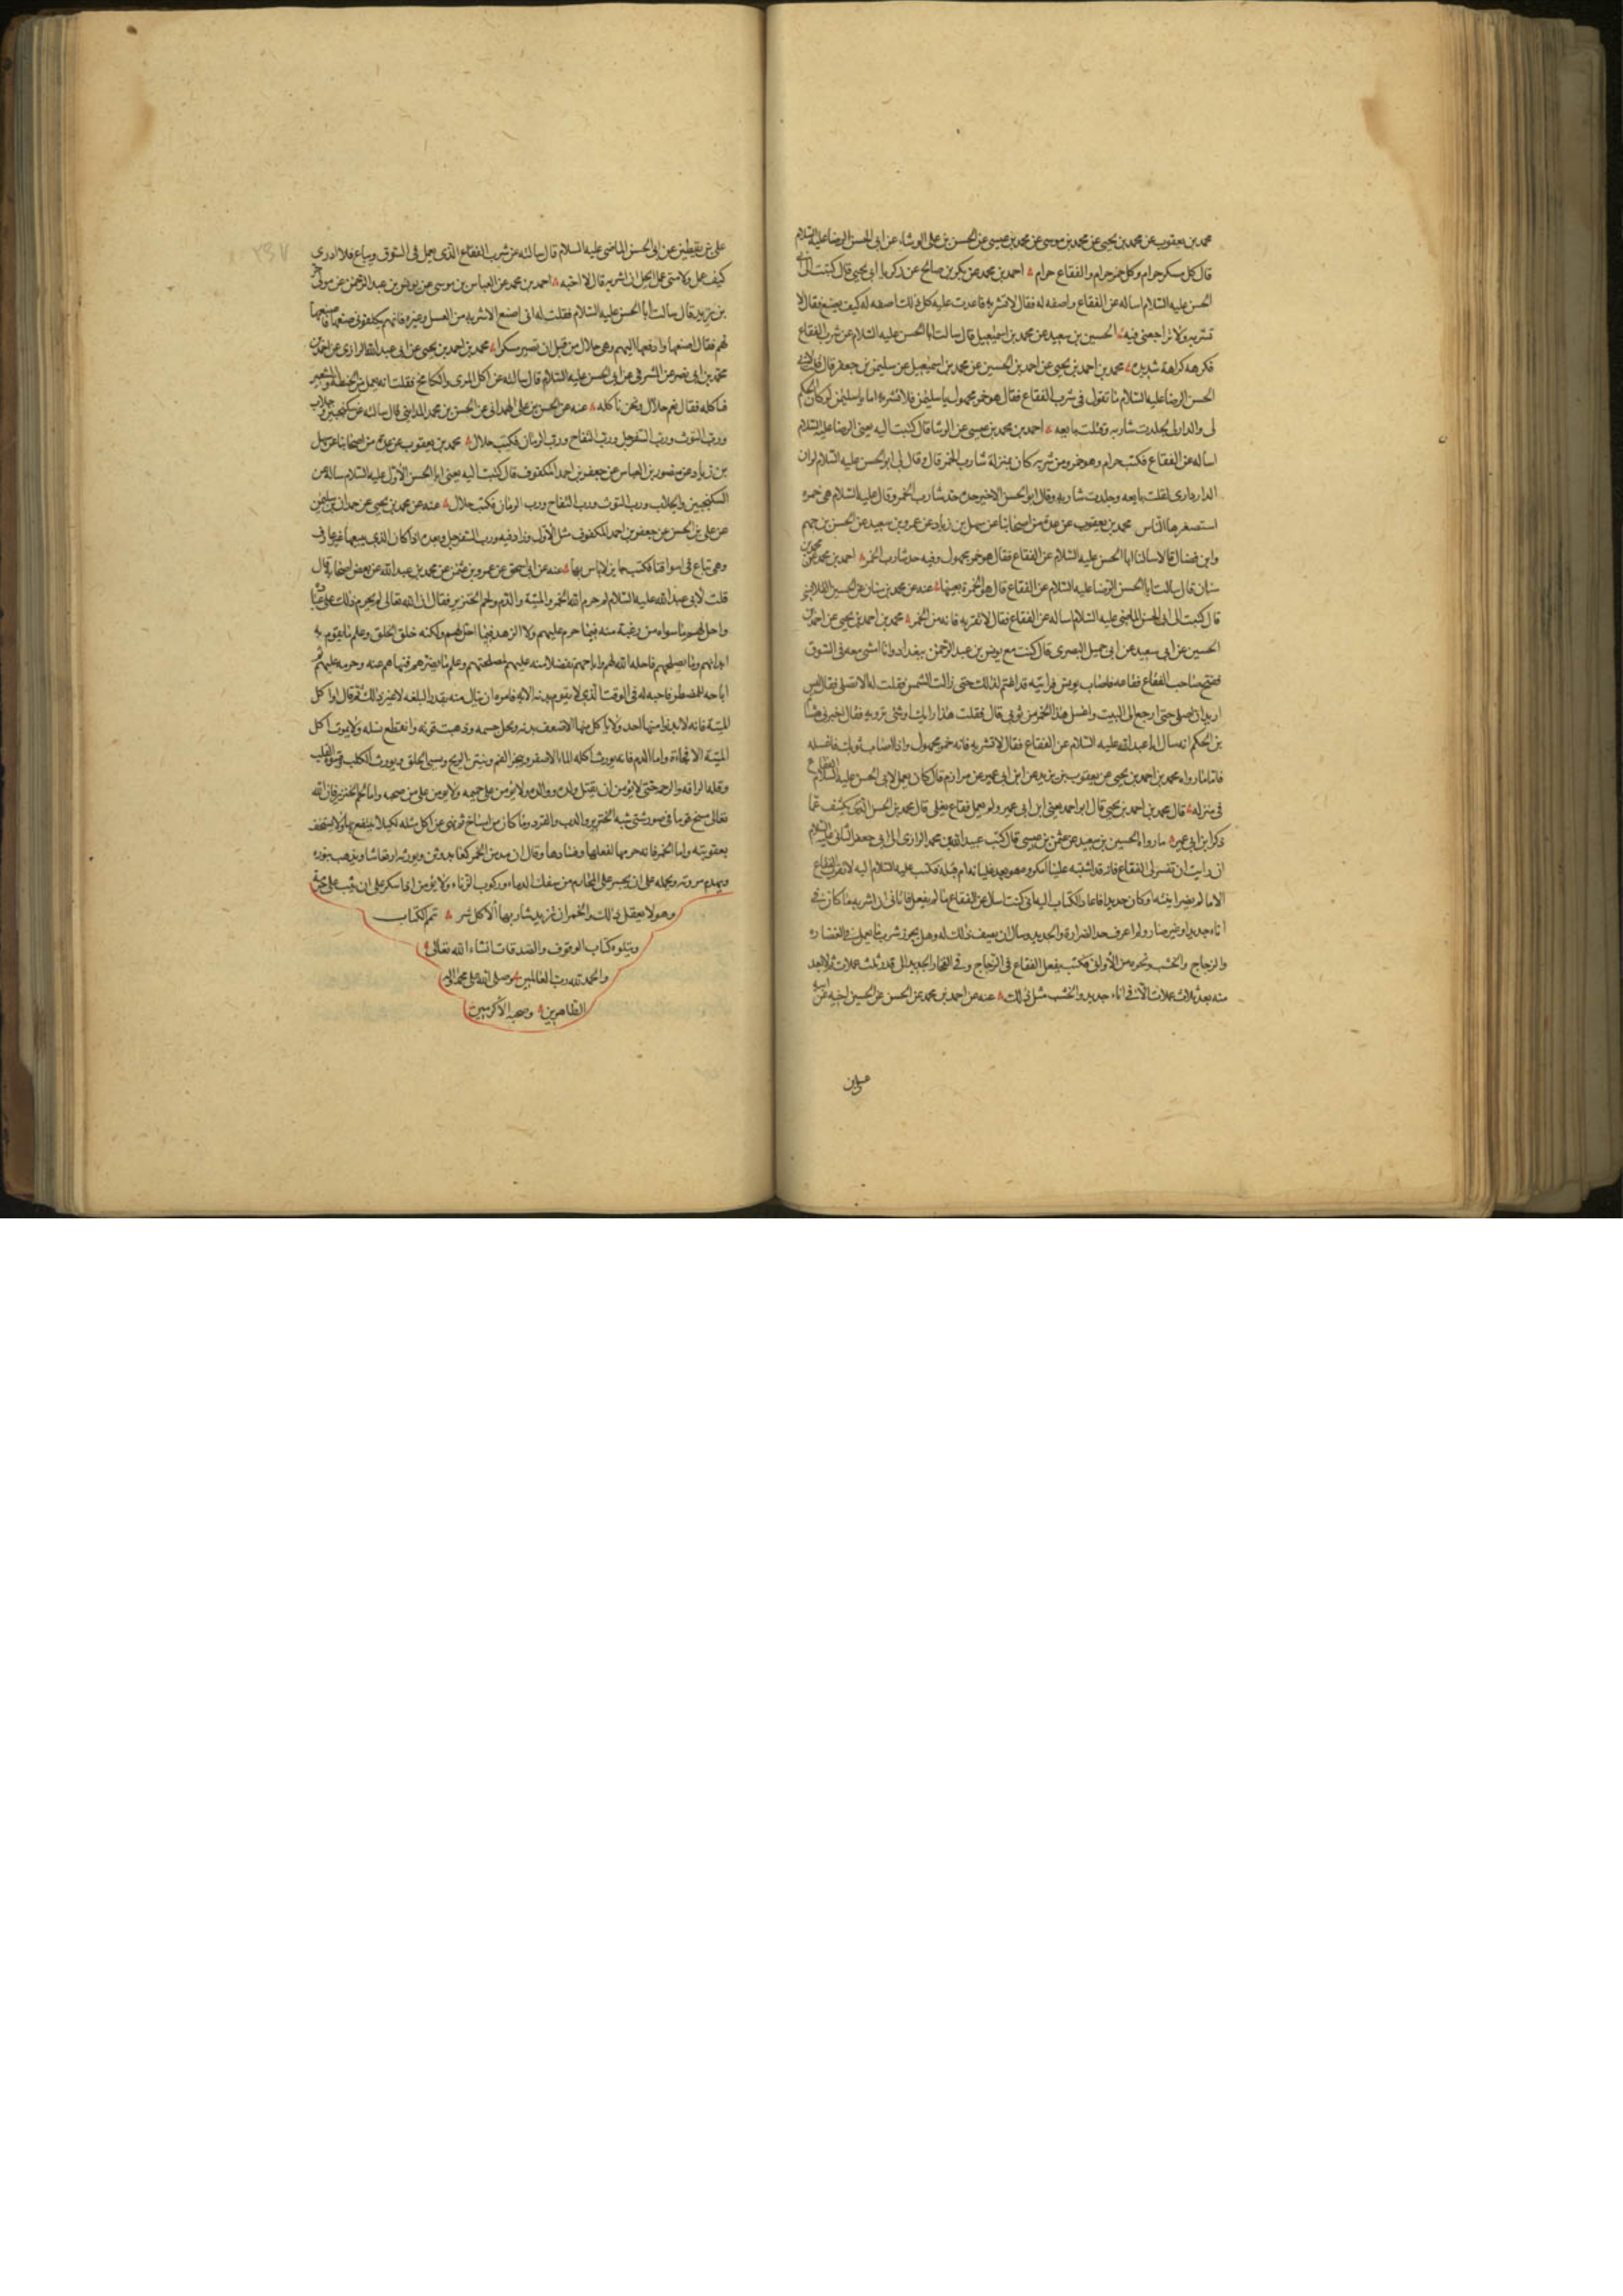 محمد بن يعقوب عن محمد بن يحيى عن محمد بن موسى عن محمد بن عيسى عن الحسن بن على الوشاء عن ابى الحسن الرضا عليه السلام
قال كل مسكر حرام وكل خمر حرام والفقاع حرام احمد بن محمد عن بكر بن صالح عن زكريا ابى يحيى قال كتبت الى ابى
الحسن عليه السلام اساله عن الفقاع واصفه له فقال لا تشربه فاعدت عليه كل ذلك اصفه له كيف يصنع فقال لا
تشربه ولا تراجعنى فيه الحسين بن سعيد عن محمد بن اسمعيل قال سالت ابا الحسن عليه السلام عن شرب الفقاع
فكرهه كراهة شديده محمد بن احمد بن يحيى عن احمد بن الحسين عن محمد بن اسمعيل عن سليمن بن جعفر قال قلت لابى
الحسن الرضا عليه السلام ما تقول فى شرب الفقاع فقال هو خمر مجهول يا سليمن فلا تشربه اما يا سليمن لو كان الحكم
لى والدار لى لجلدت شاربه وقتلت بايعه احمد بن محمد بن عيسى عن الوشا قال كتبت اليه يعنى الرضا عليه السلام
اساله عن الفقاع فكتب حرام وهو خمر ومن شربه كان بمنزلة شارب الخمر قال وقال لى ابو الحسن عليه السلام لو ان
الدار دارى لقتلت بايعه وجلدت شاربه وقال ابو الحسن الاخير حده حد شارب الخمر وقال عليه السلام هى خمره
استصغرها الناس محمد بن يعقوب عن عدة من اصحابنا عن سهل بن زياد عن عمرو بن سعيد عن الحسن بن جهم
وابن فضال قالا سالنا ابا الحسن عليه السلام عن الفقاع فقال هو خمر مجهول وفيه حد شارب الخمر احمد بن محمد عن محمد بن
سنان قال سالت ابا الحسن الرضا عليه السلام عن الفقاع قال هو الخمرة بعينها عنه عن محمد بن سنان عن الحسين القلانسى
قال كتبت الى ابى الحسن الماضى عليه السلام اساله عن الفقاع فقال لا تقربه فانه من الخمر محمد بن احمد بن يحيى عن احمد بن
الحسين عن ابى سعيد عن ابى جميل البصرى قال كنت مع يونس بن عبد الرحمن ببغداد وانا امشى معه فى السوق
ففتح صاحب الفقاع فقاعه فاصاب يونس فرايته قد اغتم لذلك حتى زالت الشمس فقلت له الا تصلى فقال ليس
اريد ان اصلى حتى ارجع الى البيت واغسل هذا الخمر من ثوبى قال فقلت هذا رايك او شئ ترويه فقال اخبرنى هشام
بن الحكم انه سال ابا عبد الله عليه السلام عن الفقاع فقال لا تشربه فانه خمر مجهول واذا اصاب ثوبك فاغسله
فاما ما رواه محمد بن احمد بن يحيى عن يعقوب بن يزيد عن ابن ابى عمير عن مرازم قال كان يعمل لابى الحسن عليه السلام الفقاع
فى منزله قال محمد بن احمد بن يحيى قال ابو احمد يعنى ابن ابى عمير ولم يعمل فقاع يغلى قال محمد بن الحسن الذى يكشف عما
ذكر ابن ابى عمير ما رواه الحسين بن سعيد عن عثمن بن عيسى قال كتب عبيد الله بن محمد الرازى الى ابى جعفر الثانى عليه السلام
ان رايت ان تفسر لى الفقاع فانه قد اشتبه علينا امكروه هو بعد غليانه ام قبله فكتب عليه السلام اليه لا تقرب الفقاع
الا ما لم يضر انيته او كان جديدا فاعاد الكتاب اليه انى كتبت اسال عن الفقاع ما لم يغل فاتانى ان اشربه ما كان فى
اناء جديد او غير ضار ولم اعرف حد الضراوة والجديد وسال ان يفسر ذلك له وهل يجوز شرب ما يعمل فى الغضاره
والزجاج والخشب ونحوه من الأوانى فكتب يفعل الفقاع فى الزجاج وفى الفخار الجديد الى قدر ثلث عملات ثم لا يعد
منه بعد ثلاث عملات الا فى اناء جديد والخشب مثل ذلك عنه عن احمد بن محمد عن الحسن عن الحسين اخيه عن ابيه
على بن يقطين عن ابى الحسن الماضى عليه السلام قال سالته عن شرب الفقاع الذى يعمل فى السوق ويباع فلا ادرى
كيف عمل ولا متى عمل ايحل ان اشربه قال لا احبه احمد بن محمد عن العباس بن موسى عن يونس بن عبد الرحمن عن مولى حر
بن يزيد قال سالت ابا الحسن عليه السلام فقلت له انى اصنع الاشربه من العسل وغيره فانهم يكلفونى صنعتها فاصنعها
لهم فقال اصنعها وادفعها اليهم وهى حلال من قبل ان تصير مسكرا محمد بن احمد بن يحيى عن ابى عبد الله الرازى عن احمد بن
محمد بن ابى نصر عن المشرقى عن ابى الحسن عليه السلام قال سالته عن اكل المرى والكامخ فقلت انه يعمل من الحنطه والشعير
فناكله فقال نعم حلال ونحن ناكله عنه عن الحسن بن على الهمدانى عن الحسن بن محمد المداينى قال سالته عن سكنجبين وجلاب
ورب التوث ورب السفرجل ورب التفاح ورب الرمان فكتب حلال محمد بن يعقوب عن عدة من اصحابنا عن سهل
بن زياد عن منصور بن العباس عن جعفر بن احمد المكفوف قال كتبت اليه يعنى ابا الحسن الأول عليه السلام ساله عن
السكنجبين والجلاب ورب التوث ورب التفاح ورب الرمان فكتب حلال عنه عن محمد بن يحيى عن حمدان بن سليمن
عن على بن الحسن عن جعفر بن احمد المكفوف مثل الأول وزاد فيه ورب السفرجل وبعده اذا كان الذى يبيعها غير عارف
وهى تباع فى اسواقنا فكتب جايز لا باس بها عنه عن ابى اسحق عن عمرو بن عثمن عن محمد بن عبد الله عن بعض اصحابه قال
قلت لابى عبد الله عليه السلام لم حرم الله الخمر والميتة والدم ولحم الخنزير فقال ان الله تعالى لم يحرم ذلك على عباده
واحل لهم ما سواه من رغبة منه فيما حرم عليهم ولا الزهد فيما احل لهم ولكنه خلق الخلق وعلم ما يقوم به
ابدانهم وما يصلحهم فاحله الله لهم واباحهم تفضلا منه عليهم لمصلحتهم وعلم ما يضرهم فنهاهم عنه وحرمه عليهم ثم
اباحه للمضطر فاحبه له فى الوقت الذى لا يقوم بدنه الا به فامره ان ينال منه بقدر البلغه لا غير ذلك ثم قال اما اكل
الميتة فانه لا يدنوا منها احد ولا ياكل منها الا ضعف بدنه ونحل جسمه وذهبت قوته وانقطع نسله ولا يموت اكل
الميتة الا فجاة واما الدم فانه يورث اكله الماء الاصفر ويبخر الفم وينتن الريح ويسئ الخلق ويورث الكلب وقسوة القلب
وقلة الرافة والرحمة حتى لا يؤمن ان يقتل ولده ووالده ولا يؤمن على حميمه ولا يؤمن على من صحبه واما لحم الخنزير فان الله
تعالى مسخ قوما فى صور شتى شبه الخنزير والدب والقرد وما كان من امساخ ثم نهى عن اكل مثله لكيلا ينتفع بها ولا يستخف
بعقوبته واما الخمر فانه حرمها لفعلها وفسادها وقال ان مدمن الخمر كعابد وثن ويورثه ارتعاشا ويذهب بنوره
ويهدم مروته ويحمله على ان يجسر على المحارم من سفك الدماء وركوب الزناء ولا يؤمن اذا سكر على ان يثب على حرمه
وهو لا يعقل ذلك والخمر ان تزيد شاربها الا كل شر تم الكتاب
ويتلوه كتاب الوقوف والصدقات انشاء الله تعالى
والحمد لله رب العالمين وصلى الله على محمد واله
الطاهرين وصحبه الأكرمين